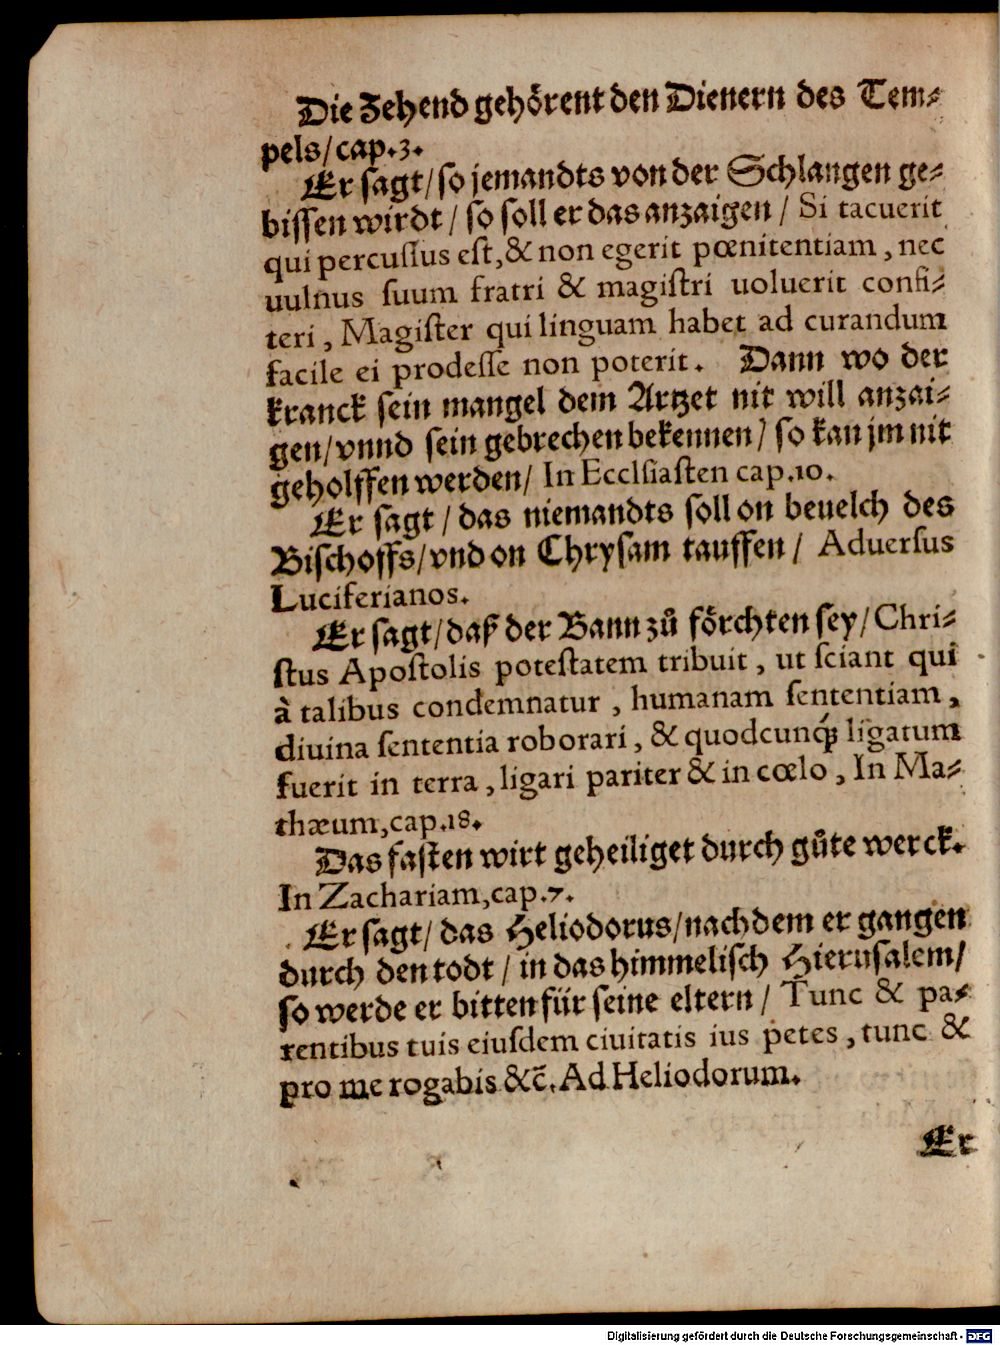 Die Zehend gehörent den Dienern des Tem⸗
pels/cap.3.
Er sagt/so jemandts von der Schlangen ge⸗
bissen wirdt/so soll er das anzaigen/Si tacuerit
qui percussus est,& non egerit pœnitentiam, nec
uulnus suum fratri & magistri uoluerit confi⸗
teri, Magister qui linguam habet ad curandum
facile ei prodesse non poterit. Dann wo der
kranck sein mangel dem Artzet nit will anzai⸗
gen/vnnd sein gebrechen bekennen/so kan jm nit
geholffen werden/In Ecclsiasten cap.10.
Er sagt/das niemandts soll on beuelch des
Bischoffs/vnd on Chrysam tauffen/Aduersus
Luciferianos.
Er sagt/daß der Bann zů förchten sey/Chri⸗
stus Apostolis potestatem tribuit, ut sciant qui
à talibus condemnatur, humanam sententiam,
diuina sententia roborari, & quodcunq́ꝫ ligatum
fuerit in terra, ligari pariter & in cœlo, In Ma⸗
thæum,cap.18.
Das fasten wirt geheiliget durch gůte werck.
In Zachariam,cap.7.
Er sagt/das Heliodorus/nach dem er gangen
durch den todt/in das himmelisch Hierusalem/
so werde er bitten für seine eltern/Tunc & pa⸗
rentibus tuis eiusdem ciuitatis ius petes, tunc &
pro me rogabis &c̄. Ad Heliodorum.
Er
Digitalisierung gefördert durch die Deutsche Forschungsgemeinschaft - DFG